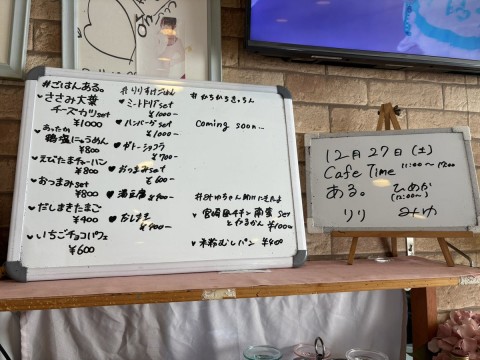 #ごはんある。
♥ささみ大葉
チーズカツset
¥1000
♥あったか
鶏塩にゅうめん
¥800
♥えびたまチャーハン
¥800
♥おつまみset
¥800
♥だしまきたまご
¥400
♥いちごチョコパフェ
¥600
#りりすけごはん
♥ミートドリアset
¥1000-
♥ハンバーグset
¥1000-
♥ガトーショコラ
¥700-
♥おつまみset
¥600-
♥湯豆腐 ¥400-
♥だしまき
¥400-
#かちかちきっちん
coming soon...
¥1000-
♥米粉むしパン ¥400
12月27日(土)
Cafe Time 11:00~17:00
ある。 ひめか
(12:00~)
りり みゆ